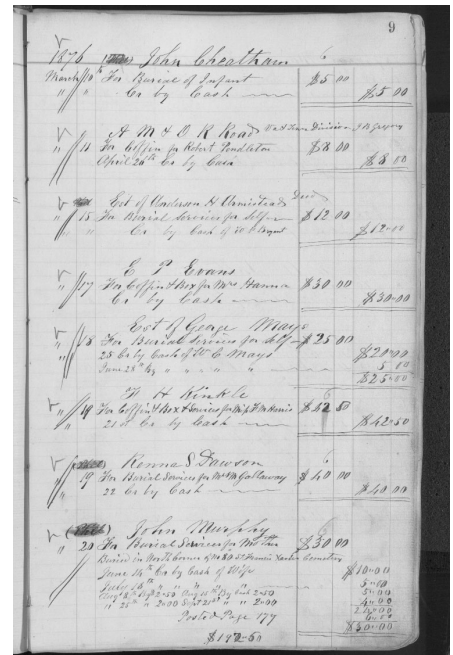 9
1876 John Cheatham
March 10th For Burial of Infant $5.00
" " Cr by Cash $5.00
A M & O R Road
" 11 For Coffin for Robert Pendleton $8.00
April 26th Cr by Cash $8.00
Est of Anderson H Armistead Decd
" 15 For Burial Services for Self $12.00
" Cr by Cash of $12.00
E P Evans
" 17 For Coffin & Box for Mrs Hanna $30.00
Cr by Cash $30.00
Est of George Mays
" 18 For Burial Services for Self $25.00
25 Cr by Cash of C Mays $20.00
June 28th By " " " 5.00
$25.00
H Kinkle
" 19 For Coffin & Box & Services for $42.50
21st Cr by Cash $42.50
Renna S Dawson
" 19 For Burial Services for Mr Callaway $40.00
22 Cr by Cash $40.00
John Murphy
" 20 For Burial Services for Mother $30.00
Buried in North Corner Cemetery
June 14th Cr by Cash of Wife $10.00
July 18th " " " " 5.00
2.50 By Cash 2.50 5.00
" 25th " 2.00 Sept 21st " " 2.00
Posted Page 177
$30.00
$192.50